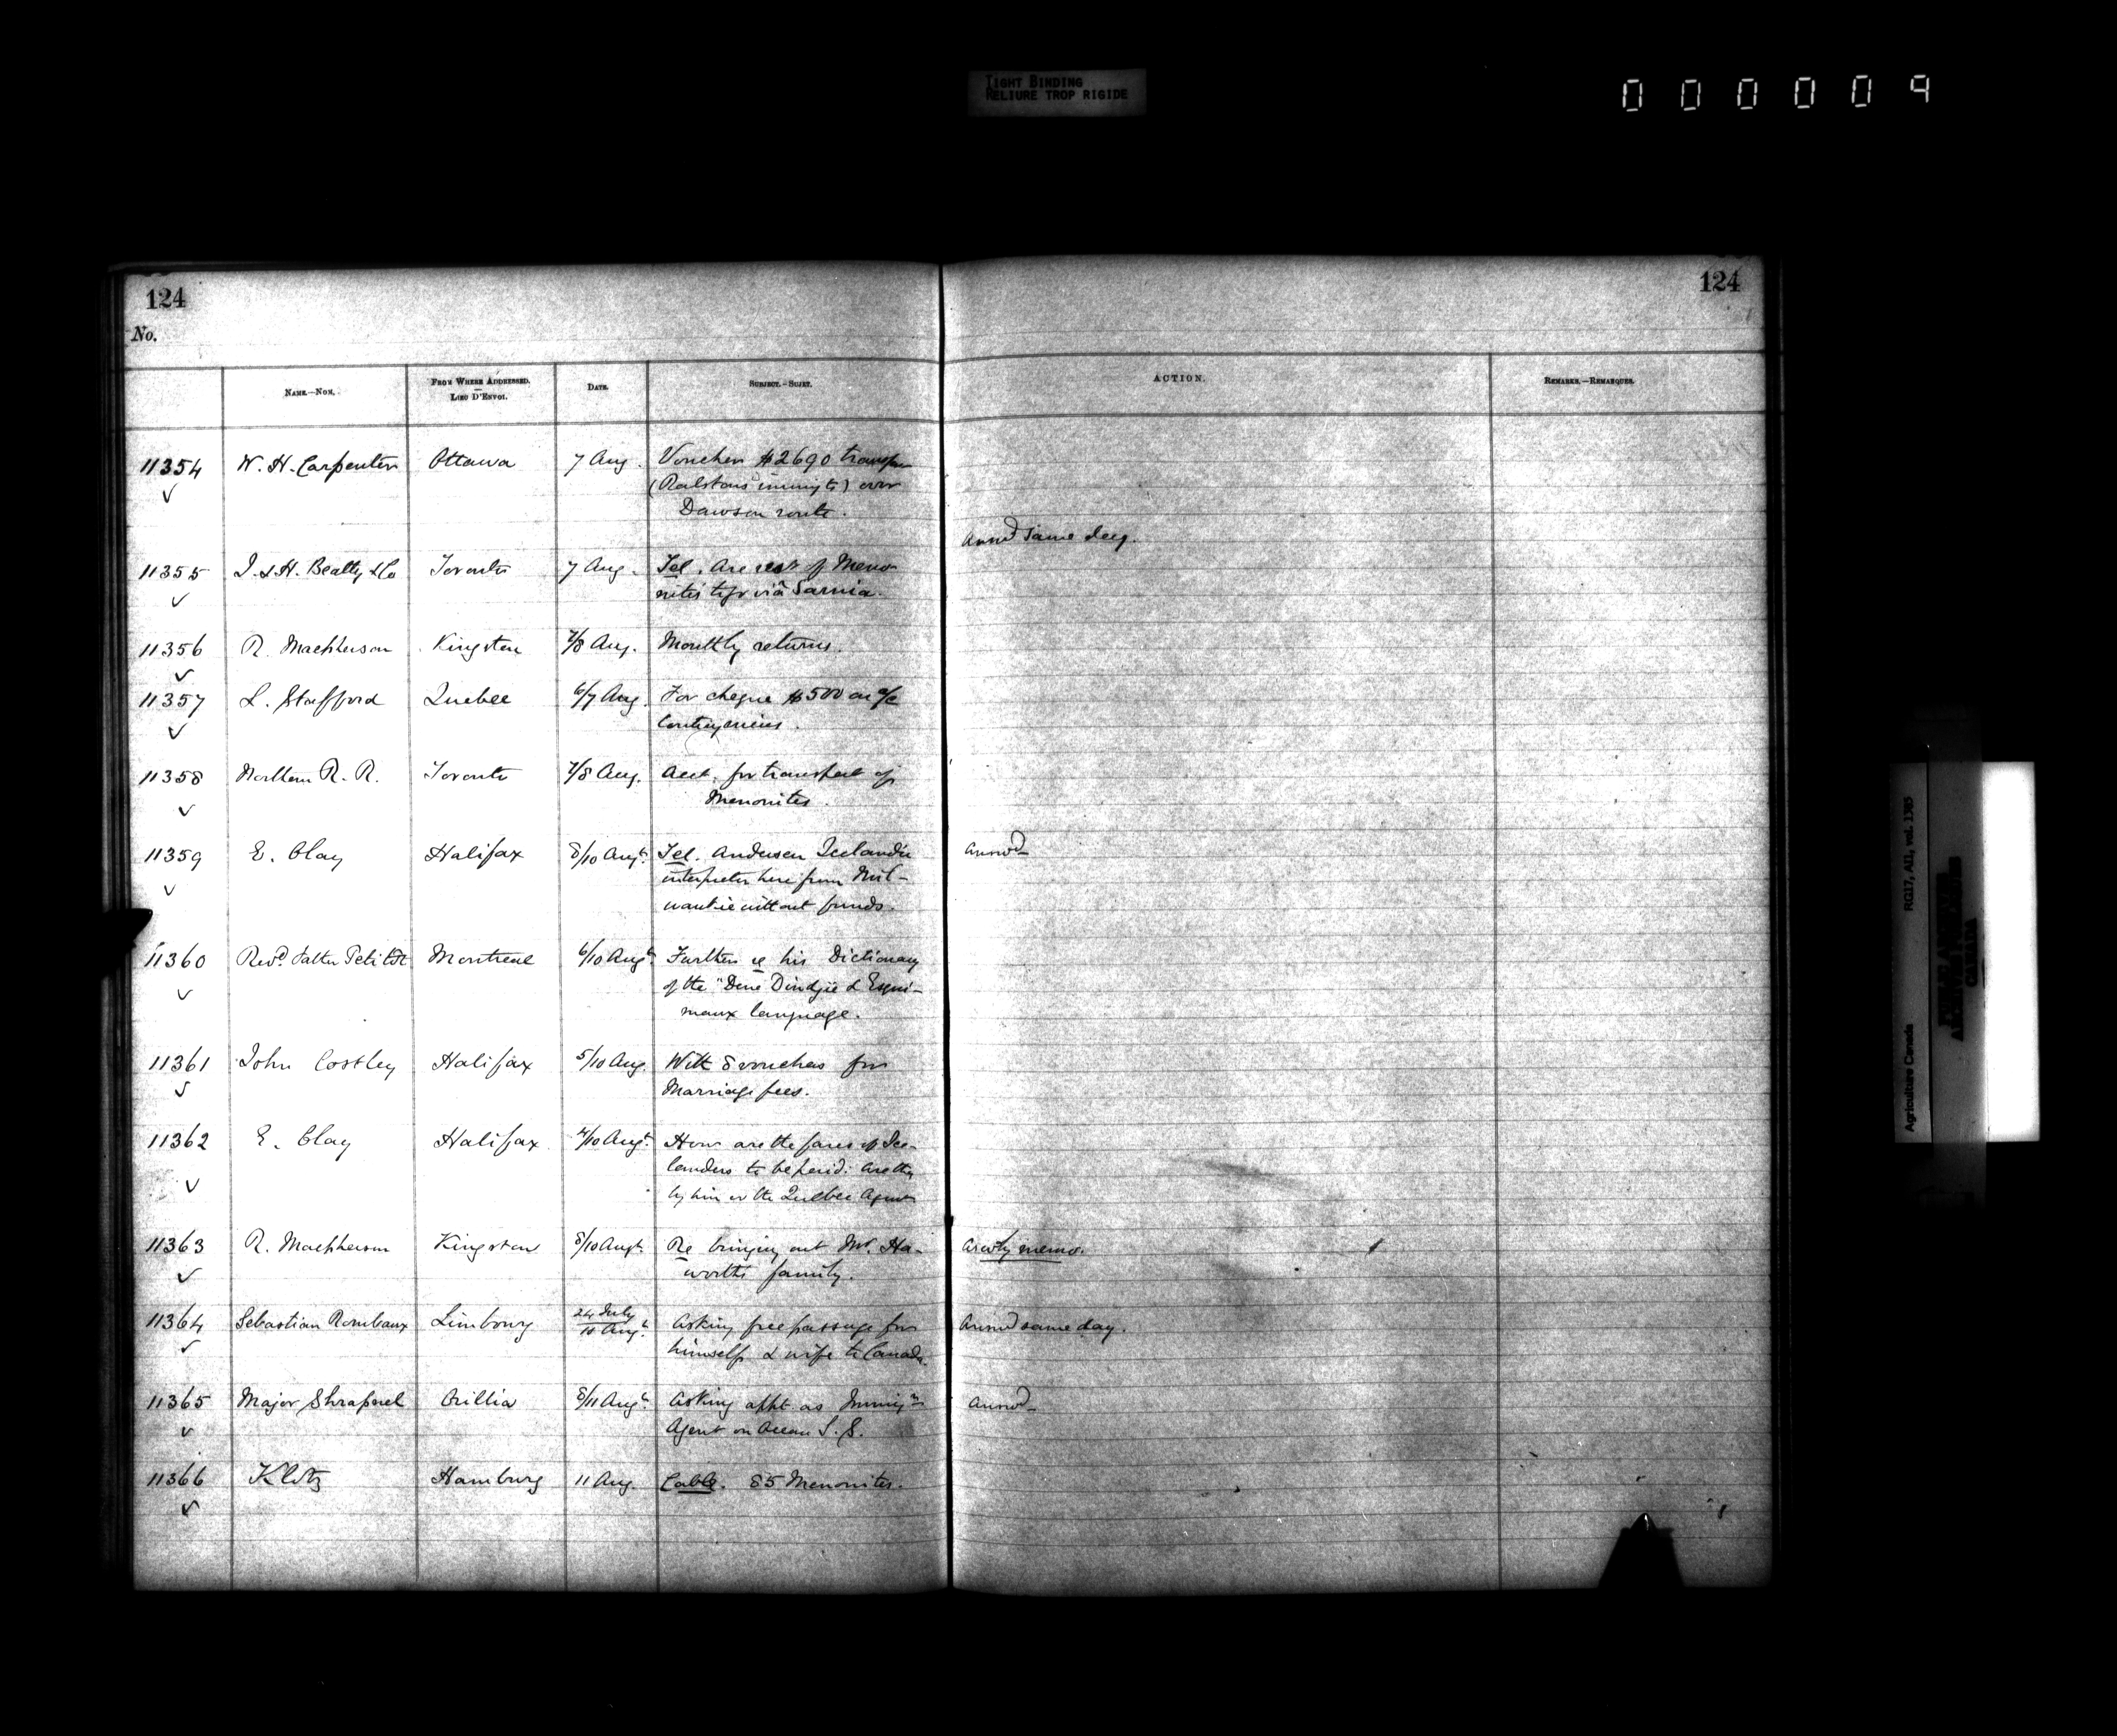 TIGHT BINDING
RELIURE TROP RIGIDE
000009
124
124
No.
NAME.—NOM.
FROM WHERE ADDRESSED.
—
LIEU D'ENVOI.
DATE.
SUBJECT.—SUJET.
ACTION.
REMARKS.—REMARQUES.
11354 W. H. Carpenter Ottawa 7 Aug. Voucher $2690 transpn
(Ralstons immgts) over
Dawson route.
11355 J. & H. Beatty & Co Toronto 7 Aug. Tel. Are rest of Meno- Answd same day.
nites to go viâ Sarnia.
11356 R. Macpherson Kingston 7/8 Aug. Monthly returns.
11357 L. Stafford Quebec 6/7 Aug. For cheque $500 on a/c
Contingencies.
11358 Northern R. R. Toronto 7/8 Aug. Acct. for transport of
Menonites.
11359 E. Clay Halifax 8/10 Augt. Tel. Anderson Icelandic Answd
interpreter here from Mil-
waukie without funds.
11360 Revd. Father Petitot Montreal 6/10 Augt. Further re his Dictionary
of the "Dene Dindjié & Esqui-
maux language.
11361 John Costley Halifax 5/10 Aug. With 8 vouchers for
Marriage fees.
11362 E. Clay Halifax 4/10 Augt. How are the fares of Ice-
landers to be paid: are they
by him or the Quebec Agent
11363 R. Macpherson Kingston 8/10 Augt. Re bringing out Mr. Ha- by memo.
worth's family.
11364 Sebastian Rombaux Limbourg 24 July
10 Augt. Asking free passage for Answd same day.
himself & wife to Canada.
11365 Major Shrapnel Orillia 8/11 Augt. Asking appt. as Immign Answd
Agent on Ocean S. S.
11366 Klotz Hamburg 11 Aug. Cable. 85 Menonites.
Agriculture Canada
RG17, AII, vol. 1385
PUBLIC ARCHIVES
ARCHIVES PUBLIQUES
CANADA